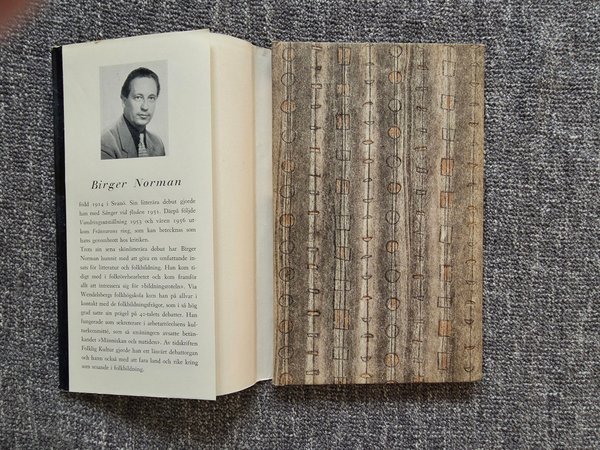 Birger Norman
född 1914 i Svanö. Sin litterära debut gjorde
han med Sånger vid floden 1951. Därpå följde
Vandringsutställning 1953 och våren 1956 ut-
kom Frånvarons ring, som kan betecknas som
hans genombrott hos kritiken.
Trots sin sena skönlitterära debut har Birger
Norman hunnit med att göra en omfattande in-
sats för litteratur och folkbildning. Han kom ti-
digt med i folkrörelsearbetet och kom framför
allt att intressera sig för »bildningsroteln». Via
Wendelsbergs folkhögskola kom han på allvar i
kontakt med de folkbildningsfrågor, som i så hög
grad satte sin prägel på 40-talets debatter. Han
fungerade som sekreterare i arbetarrörelsens kul-
turkommitté, som så småningom avsatte betän-
kandet »Människan och nutiden». Av tidskriften
Folklig Kultur gjorde han ett läsvärt debattorgan
och hann också med att fara land och rike kring
som resande i folkbildning.